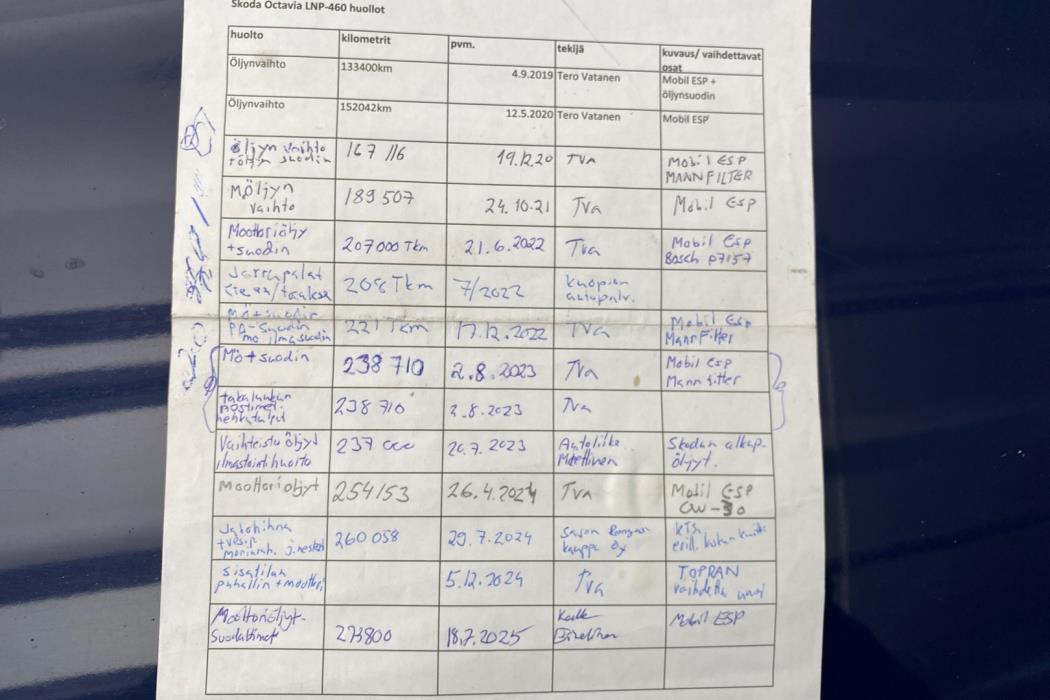 Skoda Octavia LNP-460 huollot
huolto kilometrit pvm. tekijä kuvaus/ vaihdettavat
osat
Öljynvaihto 133400km 4.9.2019 Tero Vatanen Mobil ESP +
öljynsuodin
Öljynvaihto 152042km 12.5.2020 Tero Vatanen Mobil ESP
Öljyn vaihto 167 116 19.12.20 TVA Mobil ESP
suodin MANN FILTER
Möljyn 189 507 24.10.21 Tva Mobil ESP
vaihto
Moottoriöljy 207000 Tkm 21.6.2022 Tva Mobil Esp
+suodin Bosch P7157
Jarrupalat 208 Tkm 7/2022 Kuopion
autopalv.
Mö+suodin 221 Tkm 17.12.2022 TVA Mobil Esp
PA-Suodin MannFilter
mö ilmasuodin
Mö+suodin 238 710 2.8.2023 Tva Mobil Esp
Mannfilter
takaluukun 238 710 2.8.2023 Tva
nostimet.
hehkutulpat
Vaihteistoöljyt 237 000 20.7.2023 Autoliike Skodan alkup.
ilmastointihuolto öljyt.
Moottoriöljyt 254153 26.4.2024 Tva Mobil ESP
OW-30
Jakohihna 260 058 29.7.2024 kts.
+vesip.
kauppa Oy erill.
Sisätilan 5.12.2024 Tva TOPRAN
puhallin+moottori vaihdettu uusi
Moottoriöljyt- 273800 18.7.2025 Mobil ESP
Suodattimet